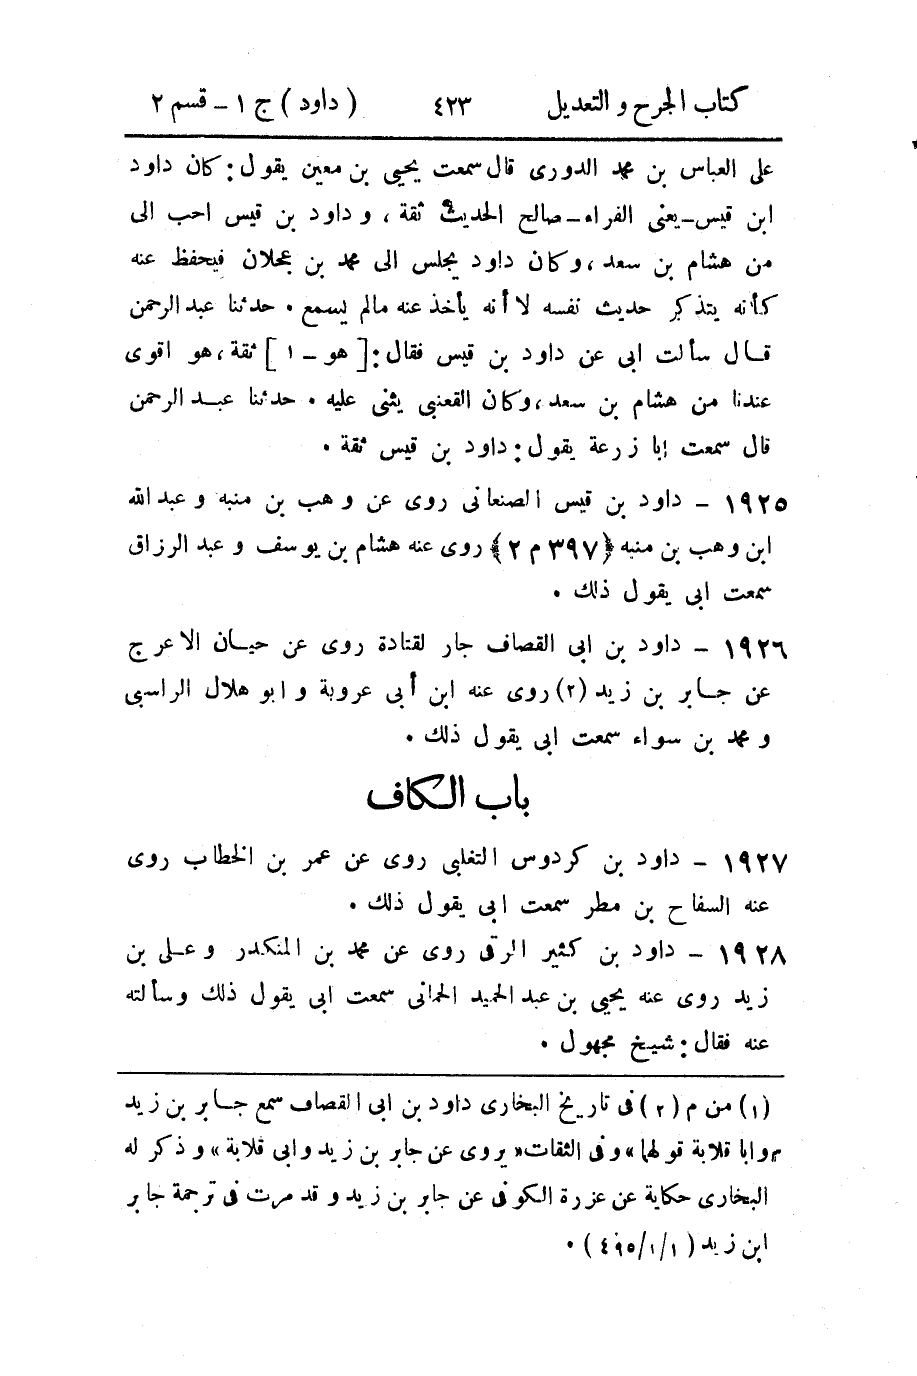 كتاب الجرح والتعديل ٤٢٣ ( داود ) ج ١ - قسم ٢
على العباس بن محمد الدورى قال سمعت يحيى بن معين يقول : كان داود
ابن قيس - يعنى الفراء - صالح الحديث ثقة ، وداود بن قيس احب الى
من هشام بن سعد ، وكان داود يجلس الى محمد بن عجلان فيحفظ عنه
كأنه يتذكر حديث نفسه لا أنه يأخذ عنه مالم يسمع . حدثنا عبد الرحمن
قال سألت ابى عن داود بن قيس فقال : [ هو - ١ ] ثقة ، هو اقوى
عندنا من هشام بن سعد ، وكان القعنبى يثنى عليه . حدثنا عبد الرحمن
قال سمعت ابا زرعة يقول : داود بن قيس ثقة .
١٩٢٥ - داود بن قيس الصنعانى روى عن وهب بن منبه وعبد الله
ابن وهب بن منبه ﴿ ٣٩٧ م ٢ ﴾ روى عنه هشام بن يوسف وعبد الرزاق
سمعت ابى يقول ذلك .
١٩٢٦ - داود بن ابى القصاف جار لقتادة روى عن حيان الاعرج
عن جابر بن زيد (٢) روى عنه ابن أبى عروبة وابو هلال الراسبى
ومحمد بن سواء سمعت ابى يقول ذلك .
باب الكاف
١٩٢٧ - داود بن كردوس التغلبى روى عن عمر بن الخطاب روى
عنه السفاح بن مطر سمعت ابى يقول ذلك .
١٩٢٨ - داود بن كثير الرقى روى عن محمد بن المنكدر وعلى بن
زيد روى عنه يحيى بن عبد الحميد الحمانى سمعت ابى يقول ذلك وسألته
عنه فقال : شيخ مجهول .
(١) من م (٢) فى تاريخ البخارى داود بن ابى القصاف سمع جابر بن زيد
وابا قلابة قولهما » وفى الثقات « يروى عن جابر بن زيد وابى قلابة » وذكر له
البخارى حكاية عن عزرة الكوفى عن جابر بن زيد وقد مرت فى ترجمة جابر
ابن زيد ( ٤٩٥/١/١ ) .